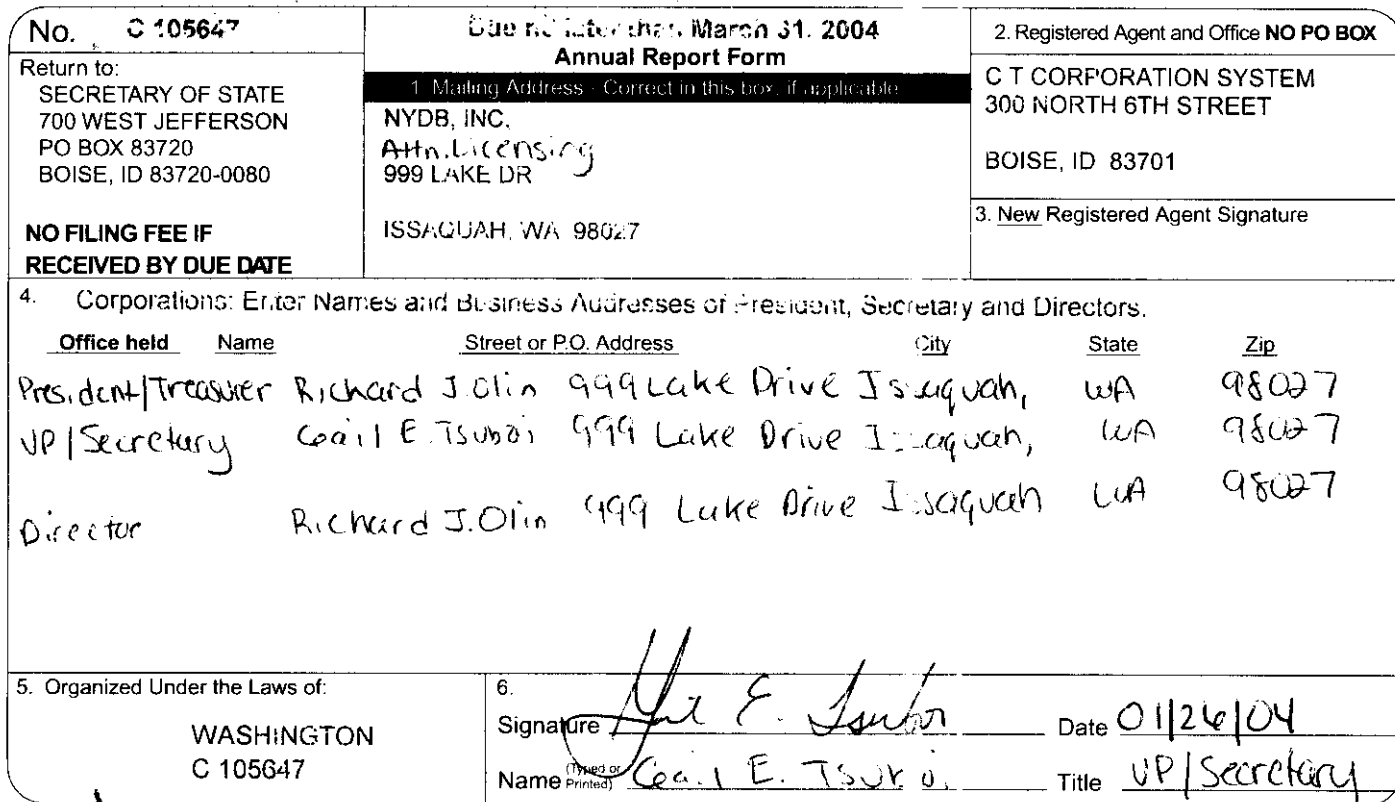 No. C 105647
Return to:
SECRETARY OF STATE
700 WEST JEFFERSON
PO BOX 83720
BOISE, ID 83720-0080
NO FILING FEE IF
RECEIVED BY DUE DATE
Due no later than March 31. 2004
Annual Report Form
1. Mailing Address - Correct in this box, if applicable
NYDB, INC.
Attn. Licensing
999 LAKE DR
ISSAQUAH, WA 98027
2. Registered Agent and Office NO PO BOX
C T CORPORATION SYSTEM
300 NORTH 6TH STREET
BOISE, ID 83701
3. New Registered Agent Signature
4. Corporations: Enter Names and Business Addresses of President, Secretary and Directors.
Office held Name Street or P.O. Address City State Zip
President/Treasurer Richard J. Olin 999 Lake Drive Issaquah, WA 98027
VP/Secretary Gail E. Tsuboi 999 Lake Drive Issaquah, WA 98027
Director Richard J. Olin 999 Lake Drive Issaquah WA 98027
5. Organized Under the Laws of:
WASHINGTON
C 105647
6.
Signature Gail E. Tsuboi Date 01/26/04
Name (Typed or Printed) Gail E. Tsuboi Title VP/Secretary